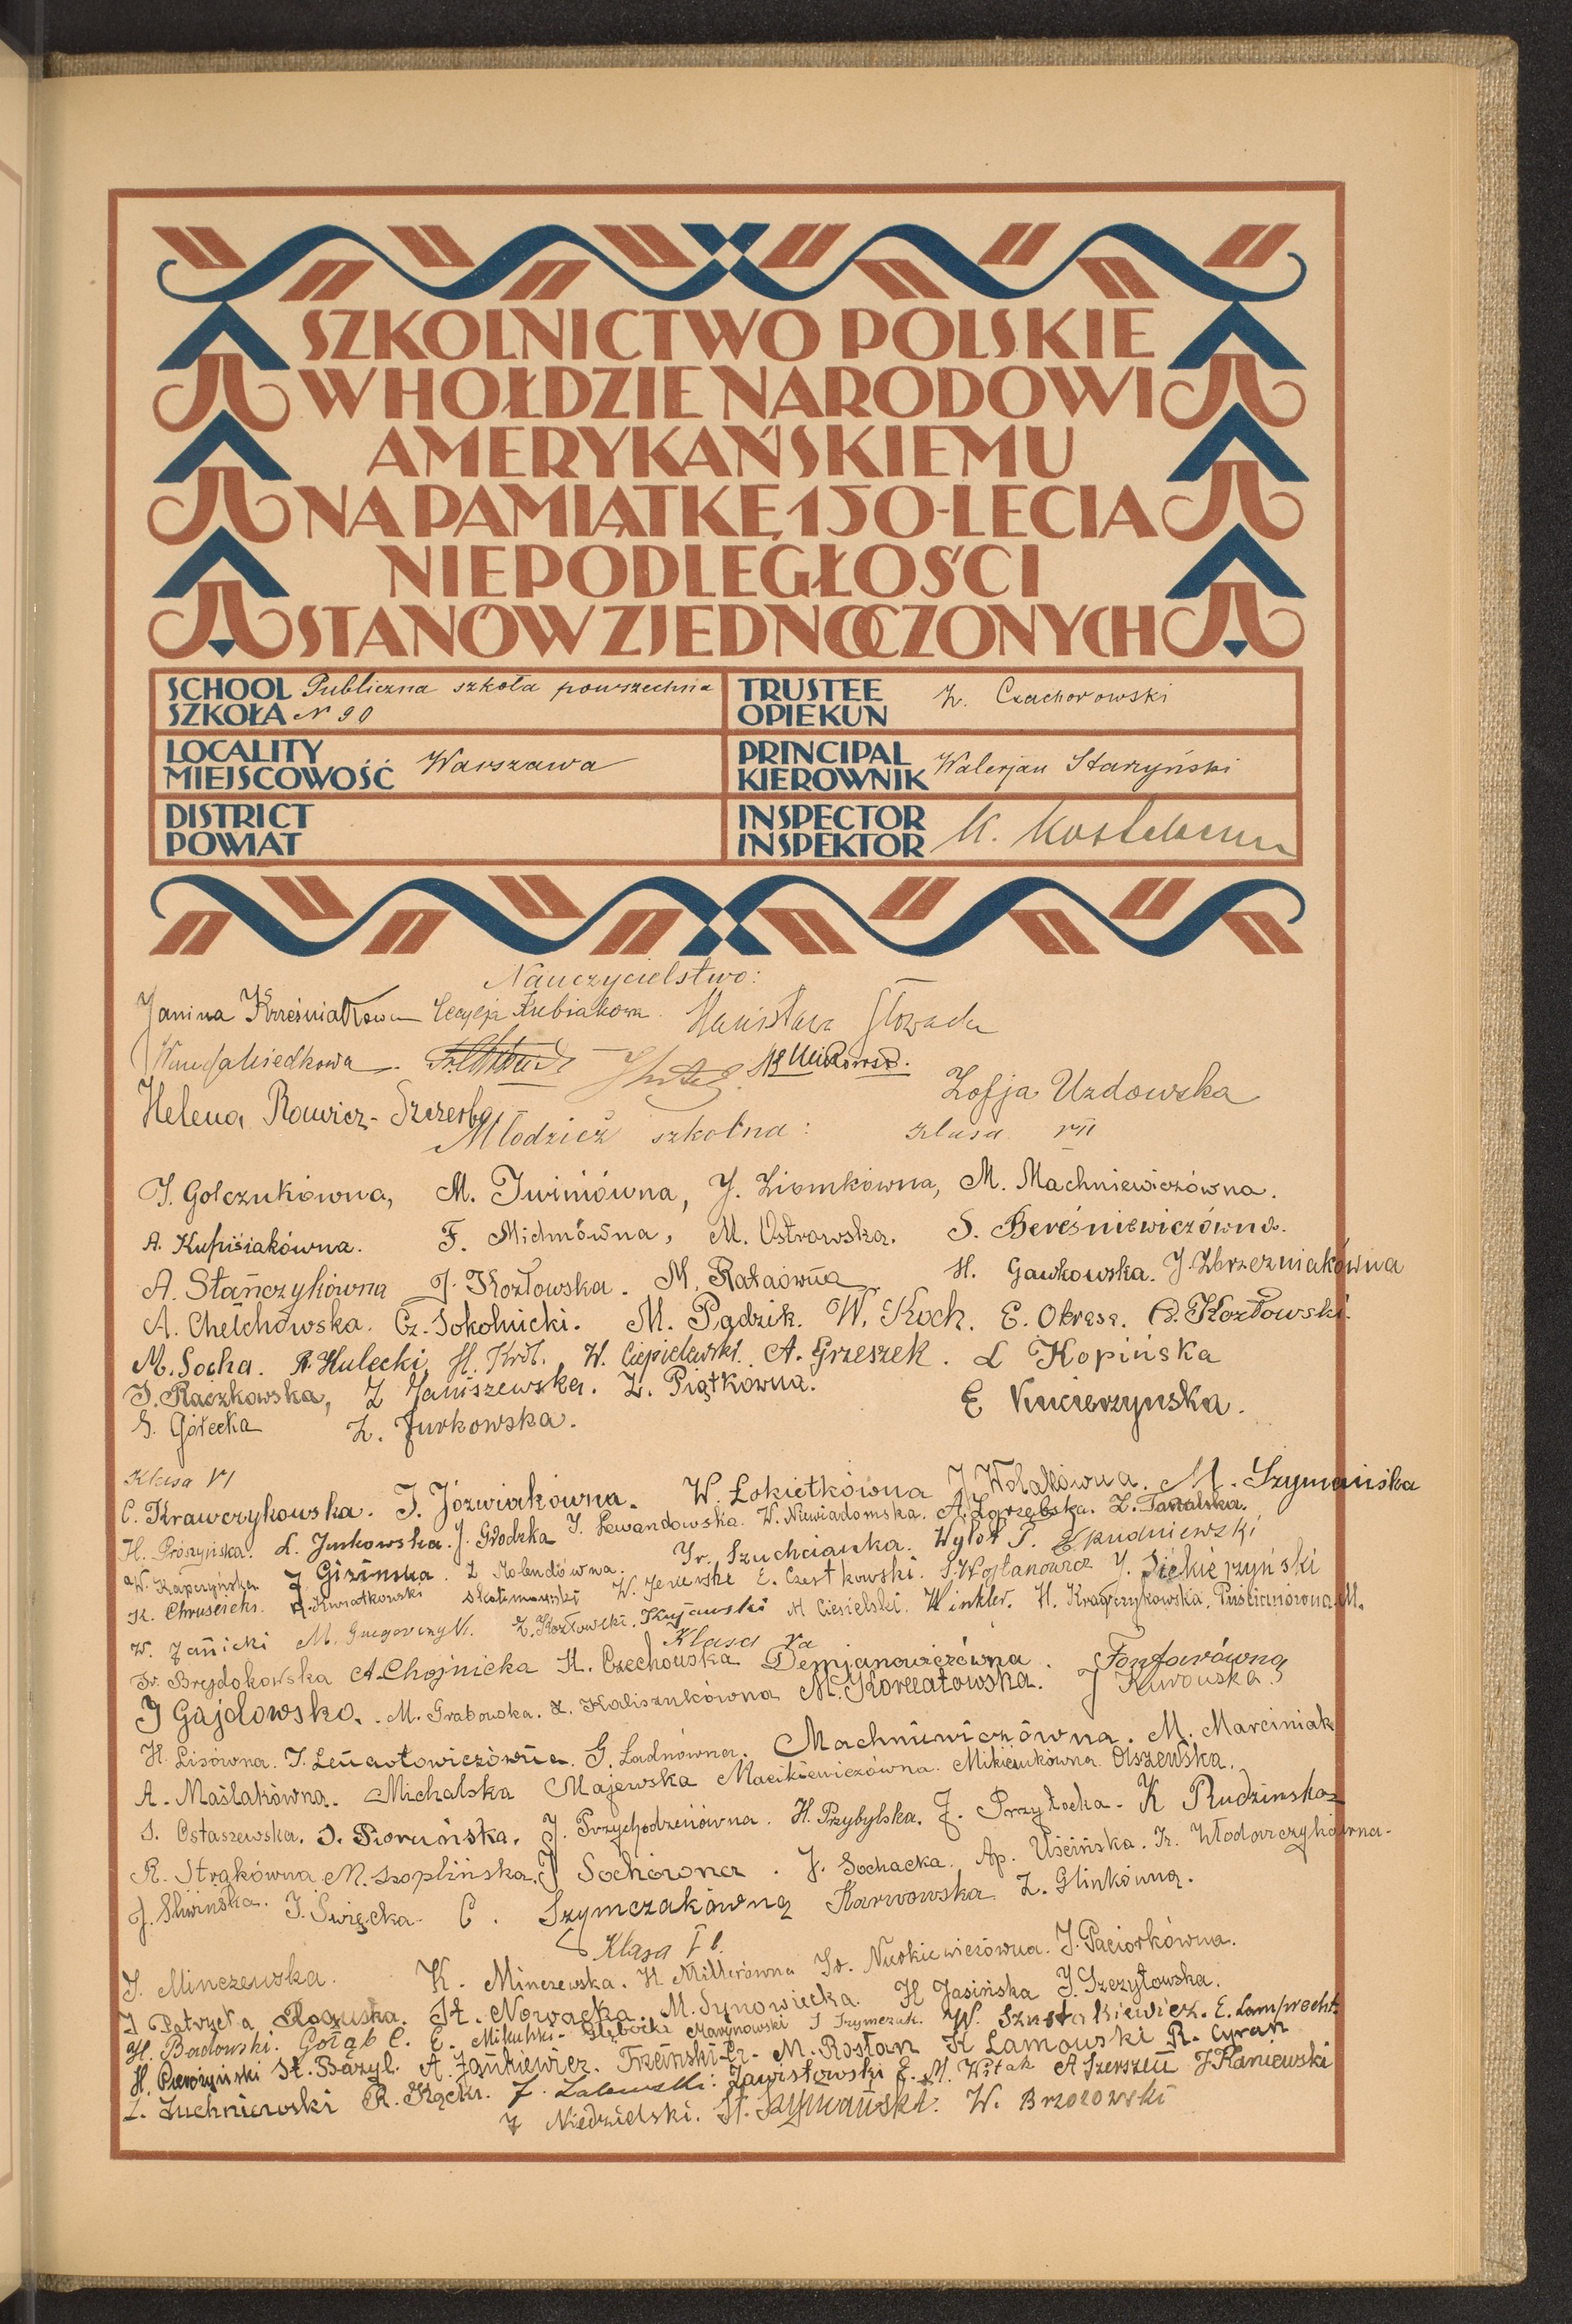 SZKOLNICTWO POLSKIE
W HOŁDZIE NARODOWI
AMERYKAŃSKIEMU
NA PAMIĄTKĘ 150-LECIA
NIEPODLEGŁOŚCI
STANÓW ZJEDNOCZONYCH
SCHOOL Publiczna szkoła powszechna
SZKOŁA N 90
TRUSTEE
OPIEKUN
Z. Czachorowski
LOCALITY
MIEJSCOWOŚĆ
Warszawa
PRINCIPAL
KIEROWNIK
Walerjan Starzyński
DISTRICT
POWIAT
INSPECTOR
INSPEKTOR
K.
Nauczycielstwo:
Janina Cecylja Kubiakowa. Stanisława
Zofja Uzdowska
Helena Rawicz-Szczerbo
Młodzież szkolna: klasa VII
J. Golczukówna, M. Iwiniówna, J. Ziomkówna, M. Machniewiczówna.
A. Kupisiakówna. F. Michnówna, M. Ostrowska. S. Bereśniewiczówna.
A. Stańczykówna J. Kozłowska. M. Ratajówna H. Gawkowska. J. Zbrzezniakówna
A. Chełchowska. Cz. Sokolnicki. M. Pądzik. W. Koch. E. Okrasa. B. Kozłowski.
M. Socha. R. Hulecki H. Król. W. Ciepielewski. A. Grzeszek. L Kopińska
J. Raczkowska, Z Janiszewska. Z. Piątkówna.
E Kucierzynska.
G. Górecka Z. Jurkowska.
Klasa VI
C. Krawczykowska. J. Józwiakówna. W. Łokietkówna J. M. Szymańska
H. Prószyńska. L. Jankowska. J. Grodzka J. Lewandowska. W. Niewiadomska. A. Zgrzebska. Z. Taralska.
W. Kapczyńska J. Gizińska. Z Kolendówna. Ir. Szuchcianka. Wylot T. Skudniewski
K. A. Kwiatkowski W. E. Czestkowski. S. Wojtanowicz J. Siekierzyński
W. Janicki M. Z. Kozłowski. Kujawski M Ciesielski. Winkler. H. Krawczykowska.
Klasa Va
Ir. Brejdokowska A. Chojnicka H. Czechowska Demjanowiczówna. Fonfarówna
J Gajdowska. M. Grabowska. Z. Kaliszukówna M. Konratowska. J Kurowska.
H. Lisówna. J. G. Ladnówna. Machniewiczówna. M. Marciniak
A. Maślakówna. Michalska Majewska Macikiewiczówna. Mikienkówna Olszewska.
S. Ostaszewska. J. Pioruńska. J. Przychodzeniówna. H. Przybylska. J. Przyłocka. K Rudzinska
R. Strąkówna M. Szoplińska. J Sochówna. J. Sochacka. Ap. Uścińska. Ir. Włodarczykówna.
J. Śliwińska. J. Święcka C. Szymczakówna Karwowska Z. Glinkówna.
Klasa V b.
J. Minczewska. K. Minczewska. H Millerówna Ir. J. Paciorkówna.
J Patrzęta Roguska. St. Nowacka. M. Synowiecka. H Jasińska J. Szczytowska.
H. Badowski. Gołąb C. E. Mikulski. Głębocki Marynowski J Szymczak. W. Szustakiewicz. E. Lamprecht
H. St. Bazyl. A. Jankiewicz. Trzciński Cz. M. Rosłan K Lamowski R. Cyran
L. Zuchniewski R. Kącki. J. Zalewski. Zawistowski E. M. Witak A Szerszeń J Kaniewski
J Niedzielski. St. Szymański. W. Brzozowski